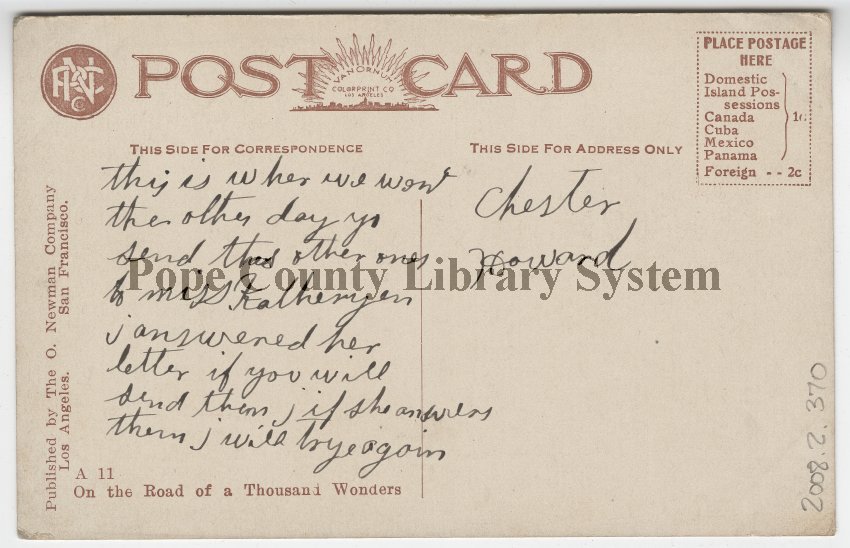 POST CARD
VAN ORNUM
COLORPRINT CO
LOS ANGELES
PLACE POSTAGE
HERE
Domestic
Island Pos-
sessions
Canada
Cuba
Mexico
Panama
1c
Foreign - - 2c
THIS SIDE FOR CORRESPONDENCE
THIS SIDE FOR ADDRESS ONLY
this is wher we wen
the other day yo
send this other ones
to miss
i answered her
letter if you will
send them i if she answers
them i will trye again
Chester
Howard
Pope County Library System
Published by The O. Newman Company
Los Angeles. San Francisco.
A 11
On the Road of a Thousand Wonders
2008.2.370